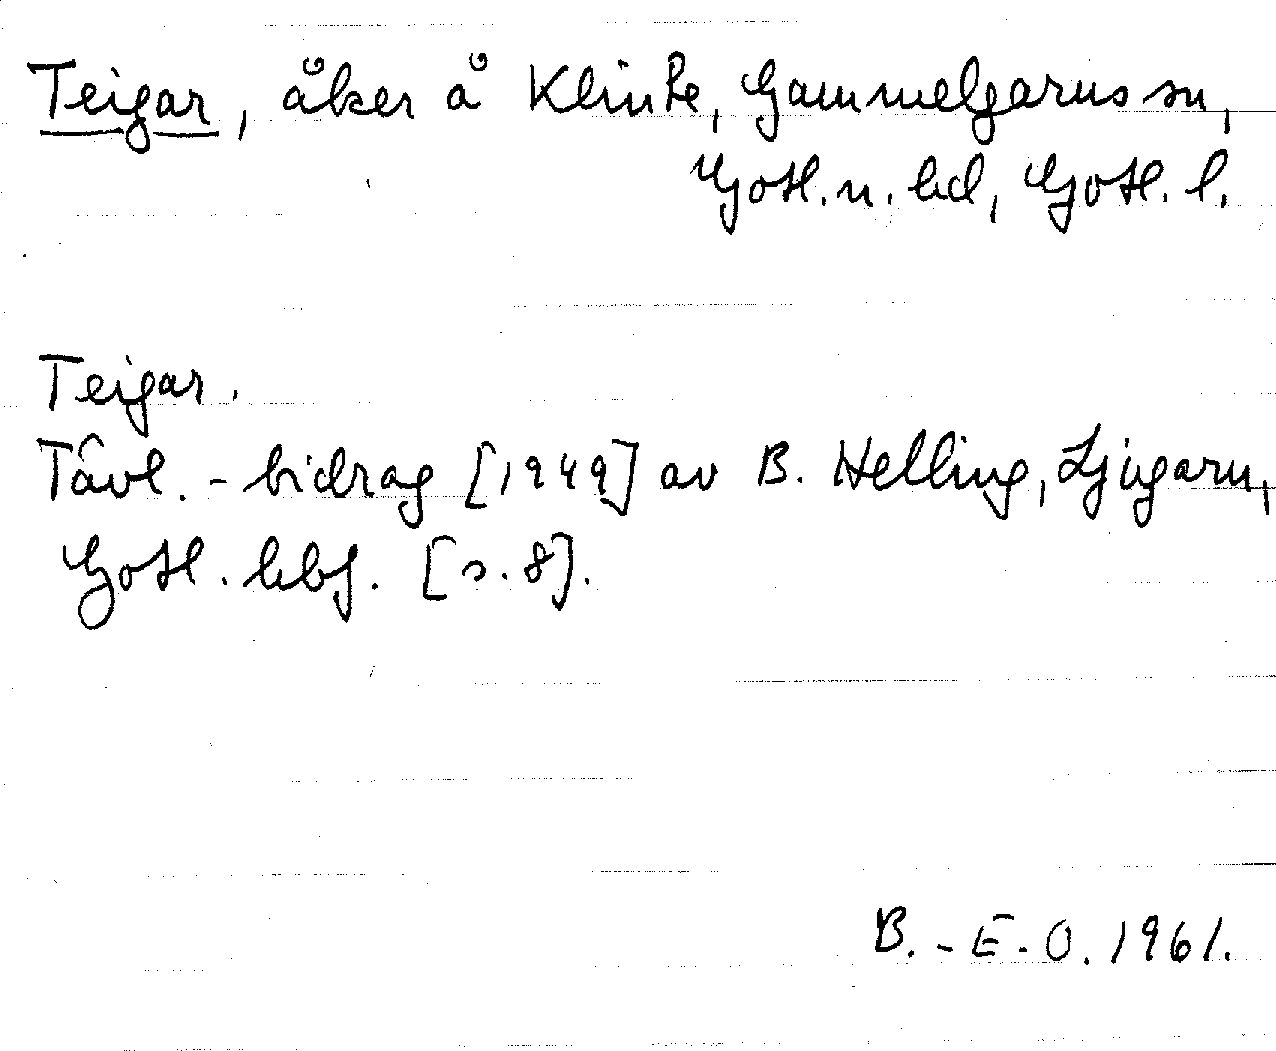 Teigar, åker å Klinte, Gammelgarns sn,
Gotl. n. hd, Gotl. l.
Teigar.
Tävl.-bidrag [1949] av B. Helling, Ljugarn,
Gotl. hbf. [s. 8].
B.-E-O. 1961.